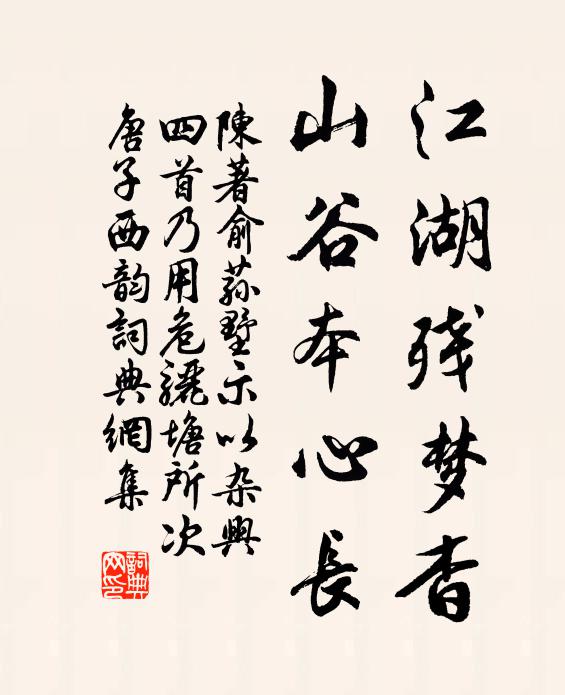 江湖残梦杳
山谷本心長
陳著俞蓀墅示以杂興
四首乃用危驪塘所次
唐子西韵詞典網集
詞典
网印